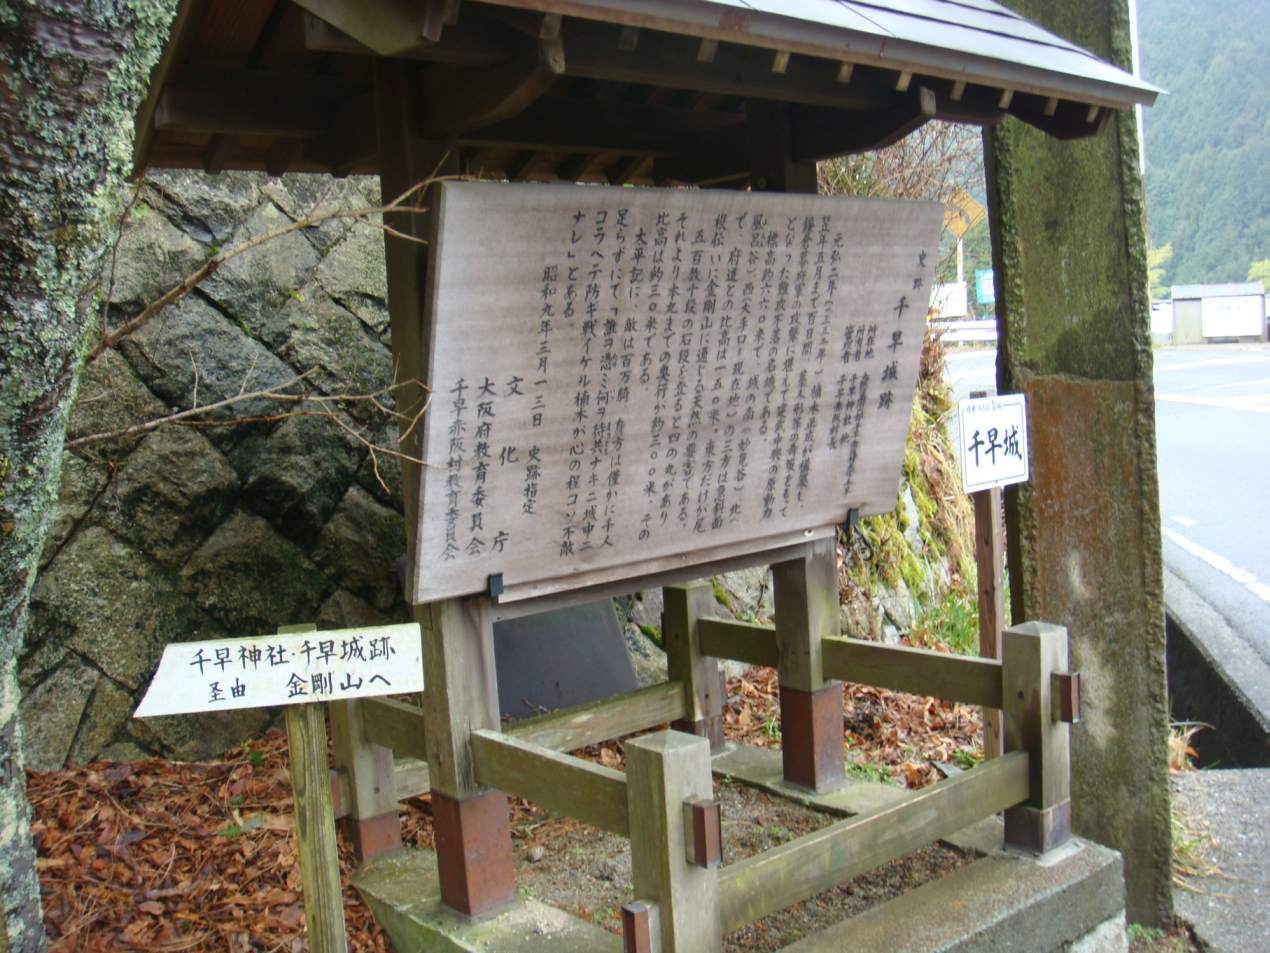 史跡 千早城跡
元弘二年(一三三二年)楠木正成が築城し、
翌年五月まで百日間、
鎌倉幕府の攻撃に堪え
となった難攻不落の名城である。
標高約六六〇米で、城の南
風呂谷)西(大手口り現在地)の三方は
で、府道との比高は一五〇米、東方だけが尾
根伝いに金剛山に通じる天然の要害である。
五百数十段の石段を登ると四の丸があり
それより本丸までの奥行が約三〇〇米、その
比高は約三〇米である。
太平記に、敵は百万騎、身方は僅かに千人
足らずにて「誰ヲ憑ミ何ヲ待共ナキニ城中ニ
コラヘテ防ギ戦イケル楠木が心の程コソ不敵
ナレ」とある。
昭和九年三月一三日 史跡指定
文化庁
大阪府教育委員会
千早赤阪村教育委員会
千早城
千早神社・千早城跡
圣由 金剛山へ